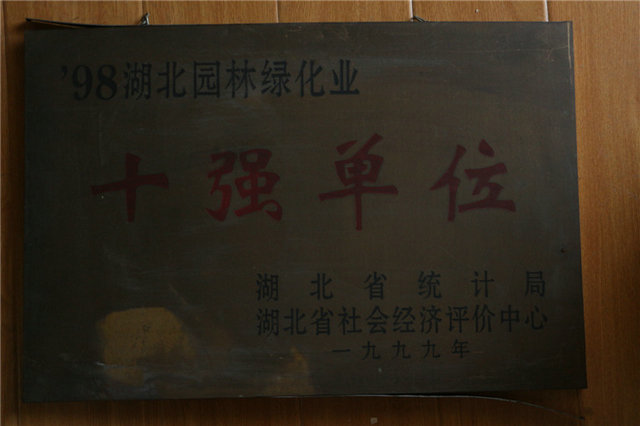 '98湖北园林绿化业
十强单位
湖北省统计局
湖北省社会经济评价中心
一九九九年